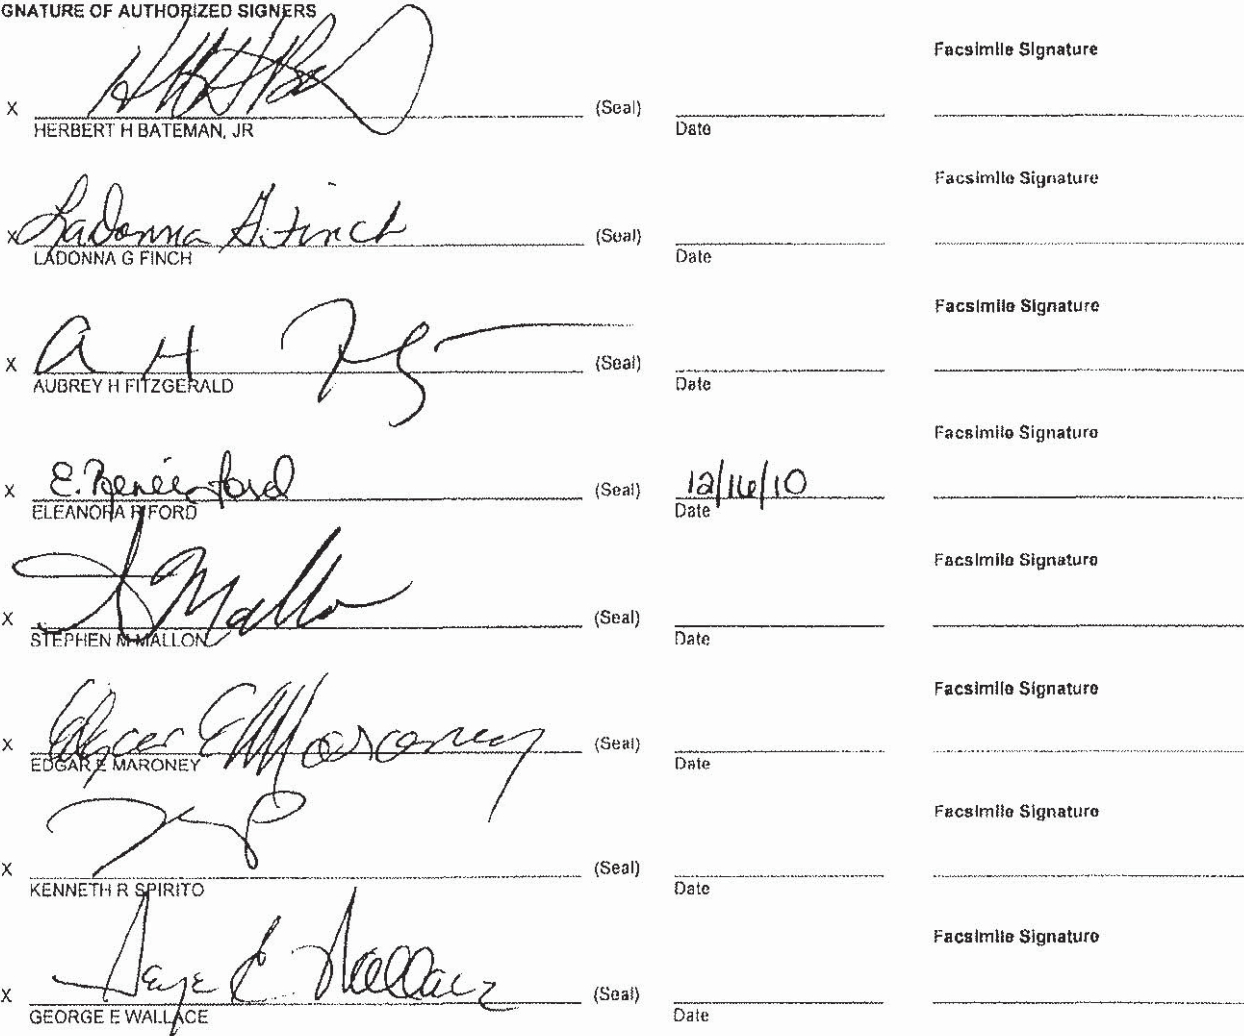 GNATURE OF AUTHORIZED SIGNERS
Facsimile Signature
X (Seal)
HERBERT H BATEMAN, JR Date
Facsimile Signature
X LaDonna G. Finch (Seal)
LADONNA G FINCH Date
Facsimile Signature
X A H (Seal)
AUBREY H FITZGERALD Date
Facsimile Signature
X E. Renée Ford (Seal) 12/16/10
ELEANORA R FORD Date
Facsimile Signature
X S Mallon (Seal)
STEPHEN M MALLON Date
Facsimile Signature
X Edgar E Maroney (Seal)
EDGAR E MARONEY Date
Facsimile Signature
X (Seal)
KENNETH R SPIRITO Date
Facsimile Signature
X George E. Wallace (Seal)
GEORGE E WALLACE Date